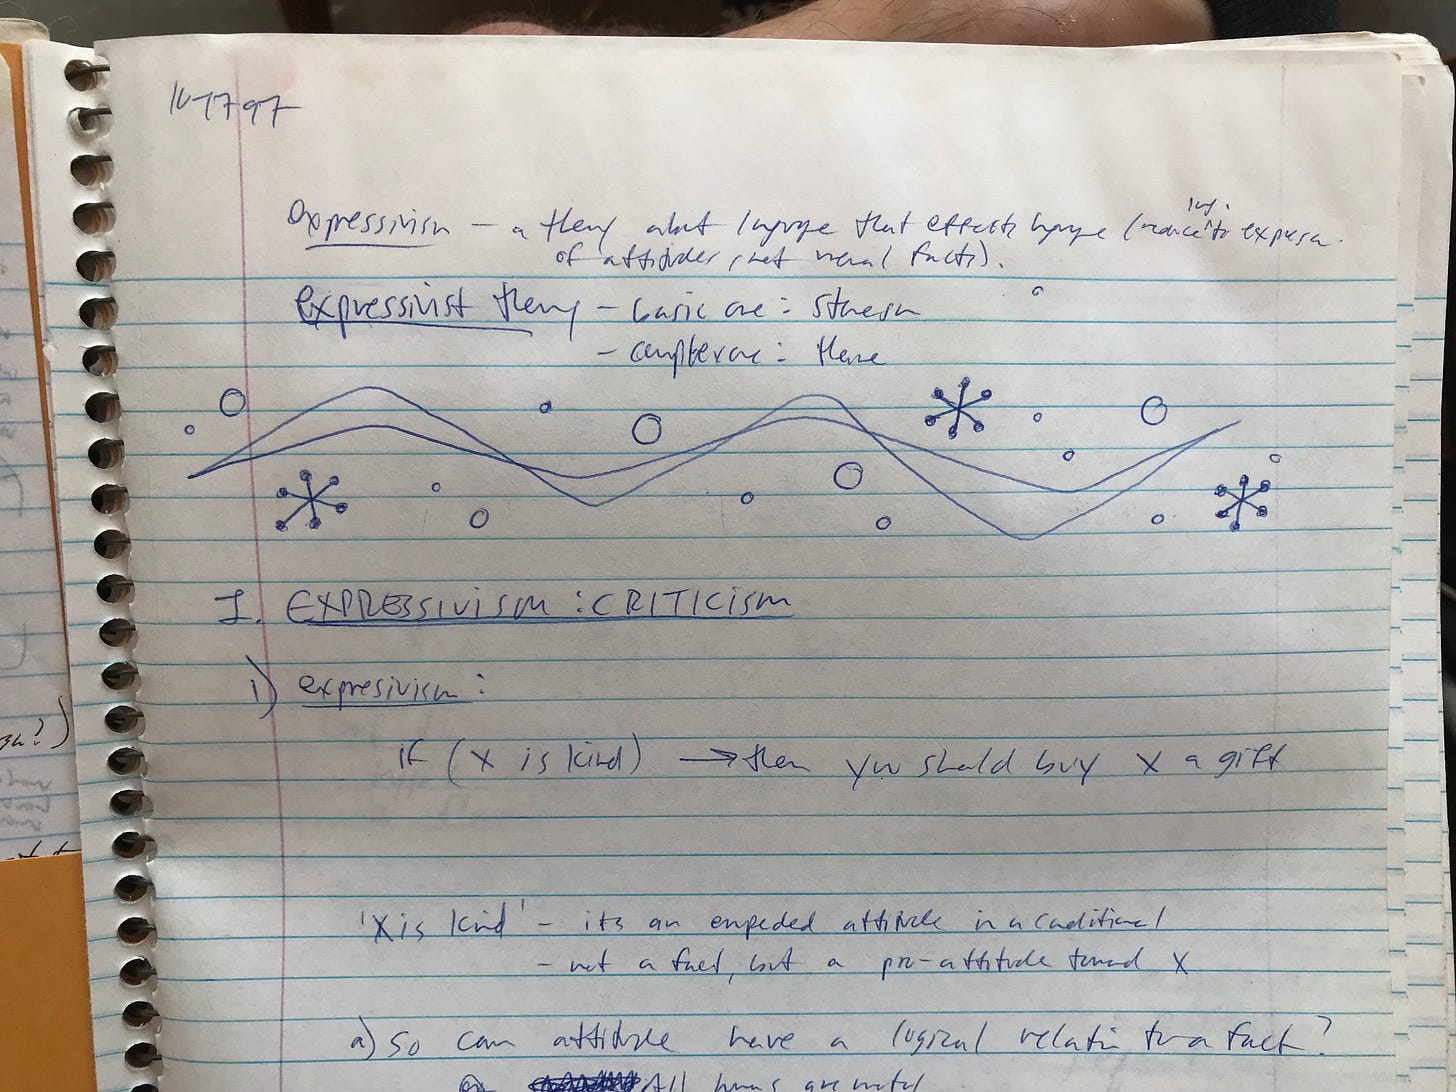 expressivism – a theory about language that effects language (reduce to
lang.
of attitudes, not moral facts).
expressivist theory – basic one: Stevenson
– complex one:
I. EXPRESSIVISM: CRITICISM
1) expresivism:
if (X is kind) → then you should buy X a gift
'X is kind' – its an empeded attitude in a conditional
– not a fact, but a pro-attitude toward X
a) So can attitude have a logical relation to a fact?
All humans are mortal